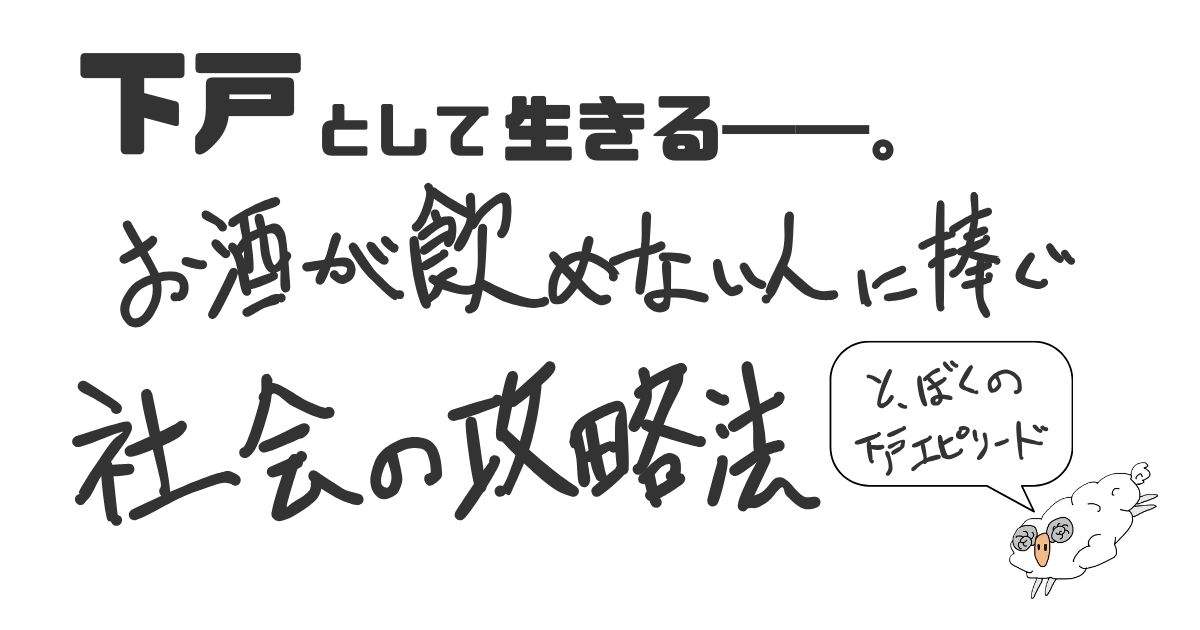 下戸として生きる──。
お酒が飲めない人に捧ぐ
社会の攻略法
と、ぼくの
下戸エピソード